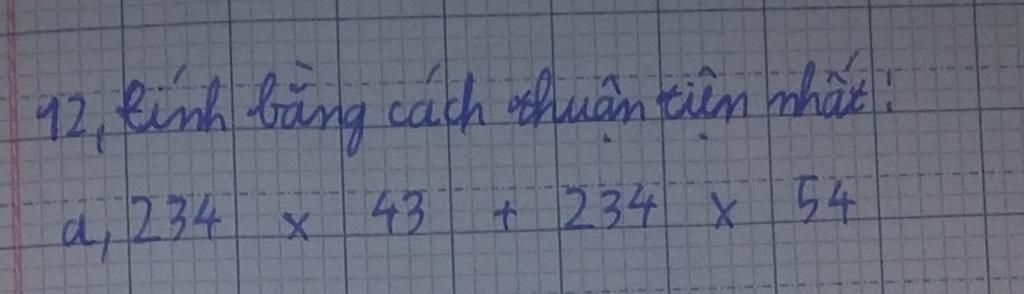 12, tính bằng cách thuận tiện nhất:
a, 234 x 43 + 234 x 54